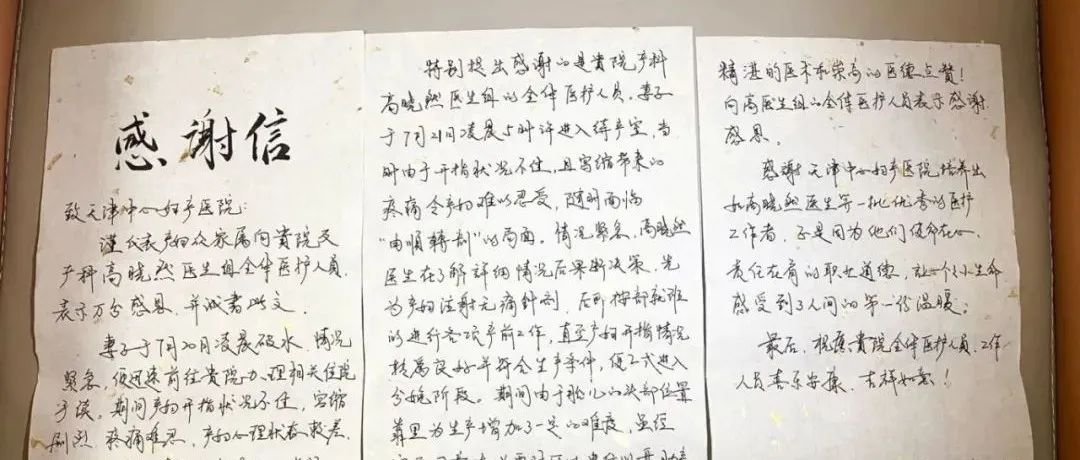 感谢信
致天津中心妇产医院：
谨代表产妇众家属向貴院及
产科高晓然医生组全体医护人员
表示万分感恩，并诚书此文。
妻子于7月20日凌晨破水，情况
紧急，便迅速前往貴院办理相关住院
手续。期间产妇开指状况不佳，宫缩
剧烈，疼痛难忍，产妇心理状态较差，
特别提出感谢的是貴院产科
高晓然医生组的全体医护人员。妻子
于7月21日凌晨5时许进入待产室，当
时由于开指状况不佳，且宫缩带来的
疼痛令产妇难以忍受，随时面临
"由順轉剖"的局面。情况緊急，高晓然
医生在了解詳细情况后果断决策，先
为产妇注射无痛针剂，后即按部就班
的进行各项产前工作，直至产妇开指情况
转属良好并符合生产条件，便正式进入
分娩阶段。期间由于胎儿的头部位置
靠里为生产增加了一定的难度，虽经
精湛的医术和崇高的医德点赞！
向高医生组的全体医护人员表示感谢，
感恩。
感谢天津中心妇产医院培养出
如高晓然医生等一批优秀的医护
工作者，正是因为他们使命在心、
责任在肩的职业道德，让一个个小生命
感受到了人间的第一份温暖；
最后，祝愿貴院全体医护人员、工作
人员喜乐安康，吉祥如意！